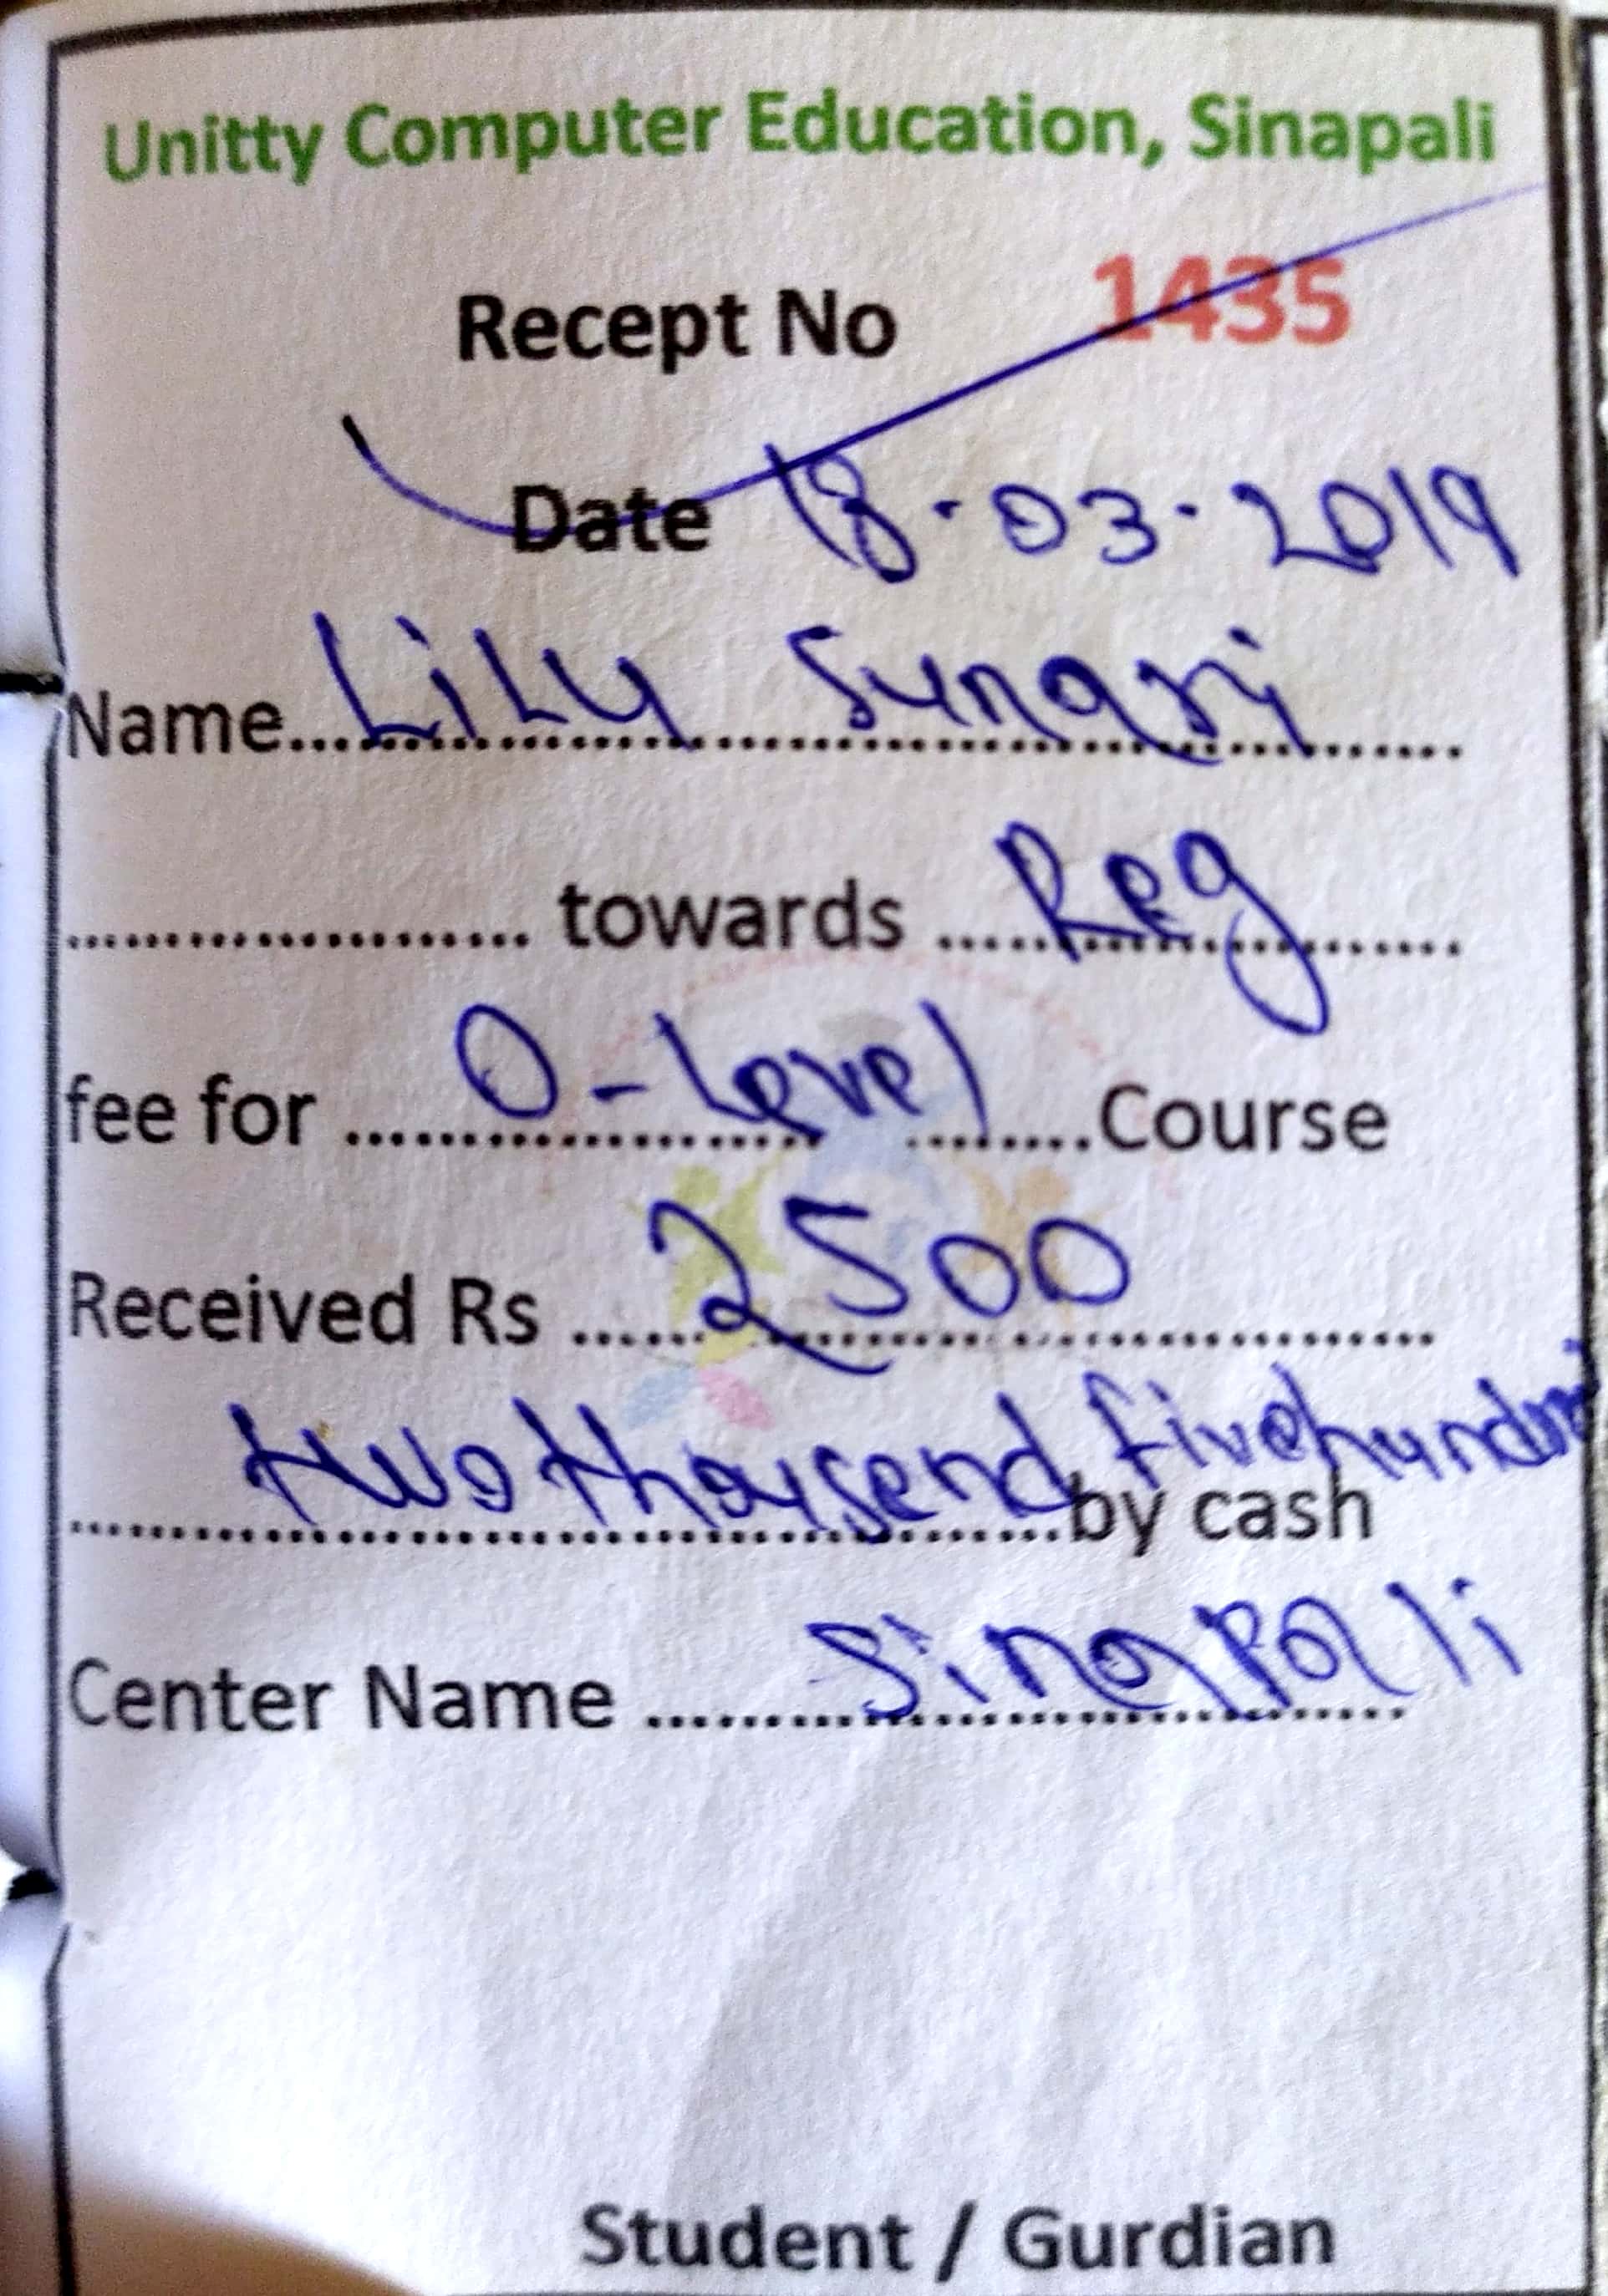 Unitty Computer Education, Sinapali
Recept No 1435
Date 18-03-2019
Name....LiLu Sunani....
.................... towards ....Reg....
fee for ....O-Level....Course
Received Rs ....2500....
....two thousend five hundred by cash
Center Name ....Sinapali
Student / Gurdian